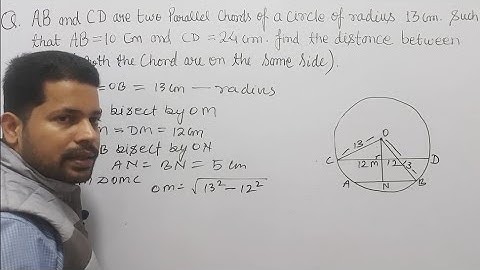 Q. AB and CD are two Parallel Chords of a circle of radius 13 cm. Such
that AB = 10 Cm and CD = 24 cm. find the distance between
both the Chord are on the Same Side).
= OB = 13 cm — radius
bisect by OM
M = DM = 12 cm
B bisect by ON
AN = BN = 5 cm
△OMC
OM = √13² – 12²
O
13
13
C
12
M
12
D
A
N
B